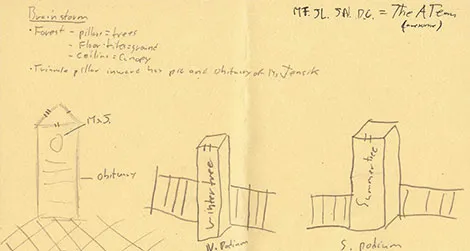 Brainstorm
MF. JL. JN. D.C. = The A Team
(awesome)
• Forest - pillar = trees
- Floor tiles = ground
- Ceiling = Canopy
• Triangle pillar inward has pic and obituary of Mr. Jensik
Mr. J.
obituary
Winter tree
Summer tree
N. Podium
S. podium